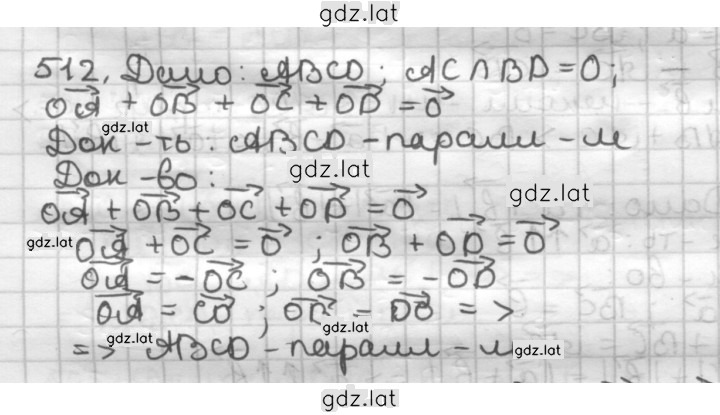 gdz.lat
512. Дано: ABCD; AC∩BD=O;
OA→ + OB→ + OC→ + OD→ = 0→
gdz.lat
Док-ть: ABCD-паралл-м
Док-во:
gdz.lat
OA→ + OB→ + OC→ + OD→ = 0→
gdz.lat
gdz.lat
OA→ + OC→ = 0→; OB→ + OD→ = 0→
OA→ = -OC→; OB→ = -OD→
OA→ = CO→; OB→ = DO→ =>
gdz.lat
gdz.lat
=> ABCD-паралл-м
gdz.lat
gdz.lat